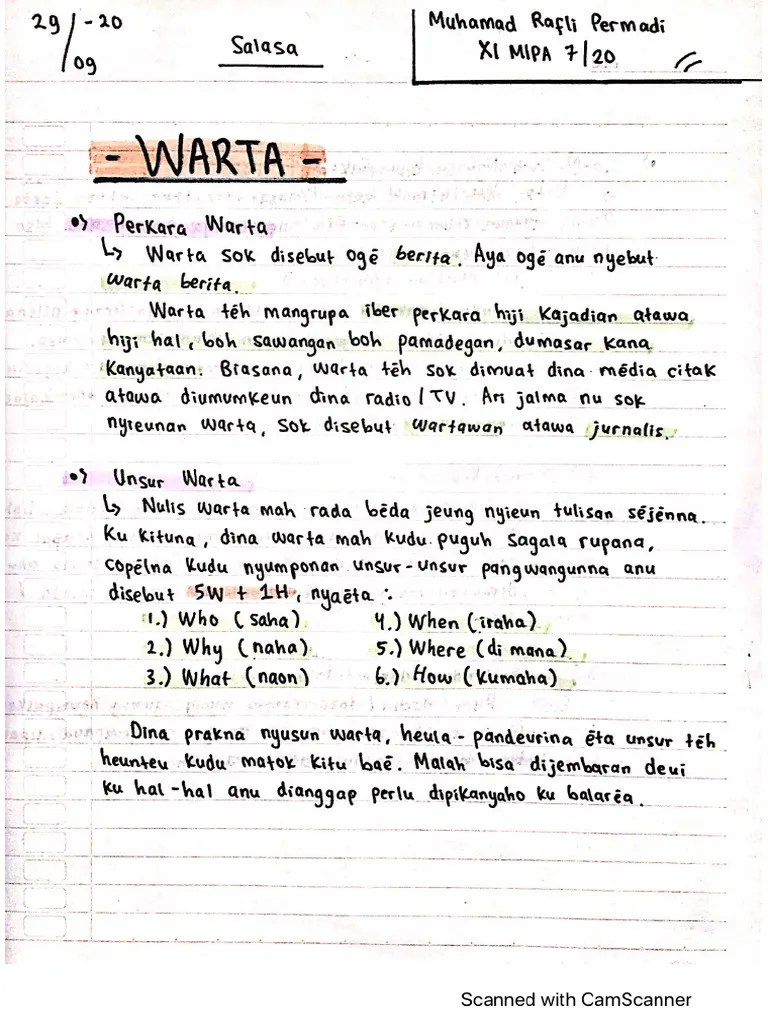 29/09-20
Salasa
Muhamad Rafli Permadi
XI MIPA 7/20
- WARTA -
Perkara Warta
↳ Warta sok disebut ogē berita. Aya ogē anu nyebut
warta berita.
Warta tēh mangrupa iber perkara hiji kajadian atawa
hiji hal, boh sawangan boh pamadegan, dumasar kana
kanyataan. Brasana, warta tēh sok dimuat dina mēdia citak
atawa diumumkeun dina radio/TV. Ari jalma nu sok
nyieunan warta, sok disebut wartawan atawa jurnalis.
Unsur Warta
↳ Nulis warta mah rada bēda jeung nyieun tulisan sējēnna.
Ku kituna, dina warta mah kudu puguh sagala rupana,
copēlna kudu nyumponan unsur-unsur pangwangunna anu
disebut 5W + 1H, nyaēta :
1.) Who (saha)
2.) Why (naha)
3.) What (naon)
4.) When (iraha)
5.) Where (di mana)
6.) How (kumaha)
Dina prakna nyusun warta, heula-pandeurina ēta unsur tēh
heunteu kudu matok kitu baē. Malah bisa dijembaran deui
ku hal-hal anu dianggap perlu dipikanyaho ku balarēa.
Scanned with CamScanner